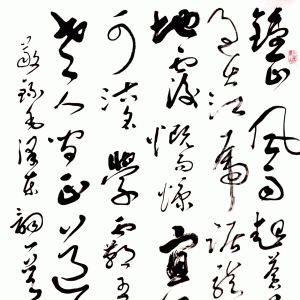 鍾山風雨起蒼
過大江虎踞龍
地覆慨而慷宜
可沽名學霸王
老人間正道
敬錄毛澤東詞一首